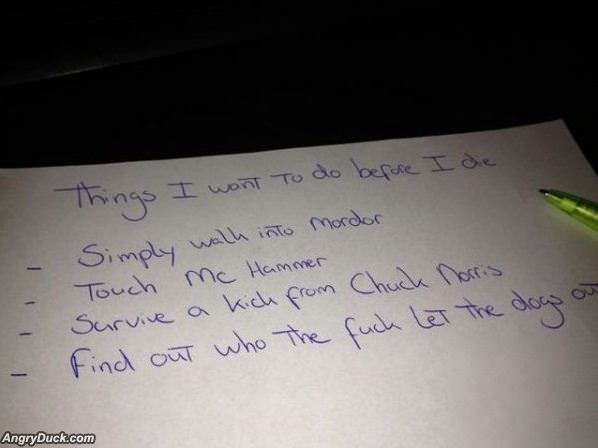 Things I want to do before I die
- Simply walk into Mordor
- Touch Mc Hammer
- Survive a kick from Chuck Norris
- Find out who the fuck let the dogs out
AngryDuck.com